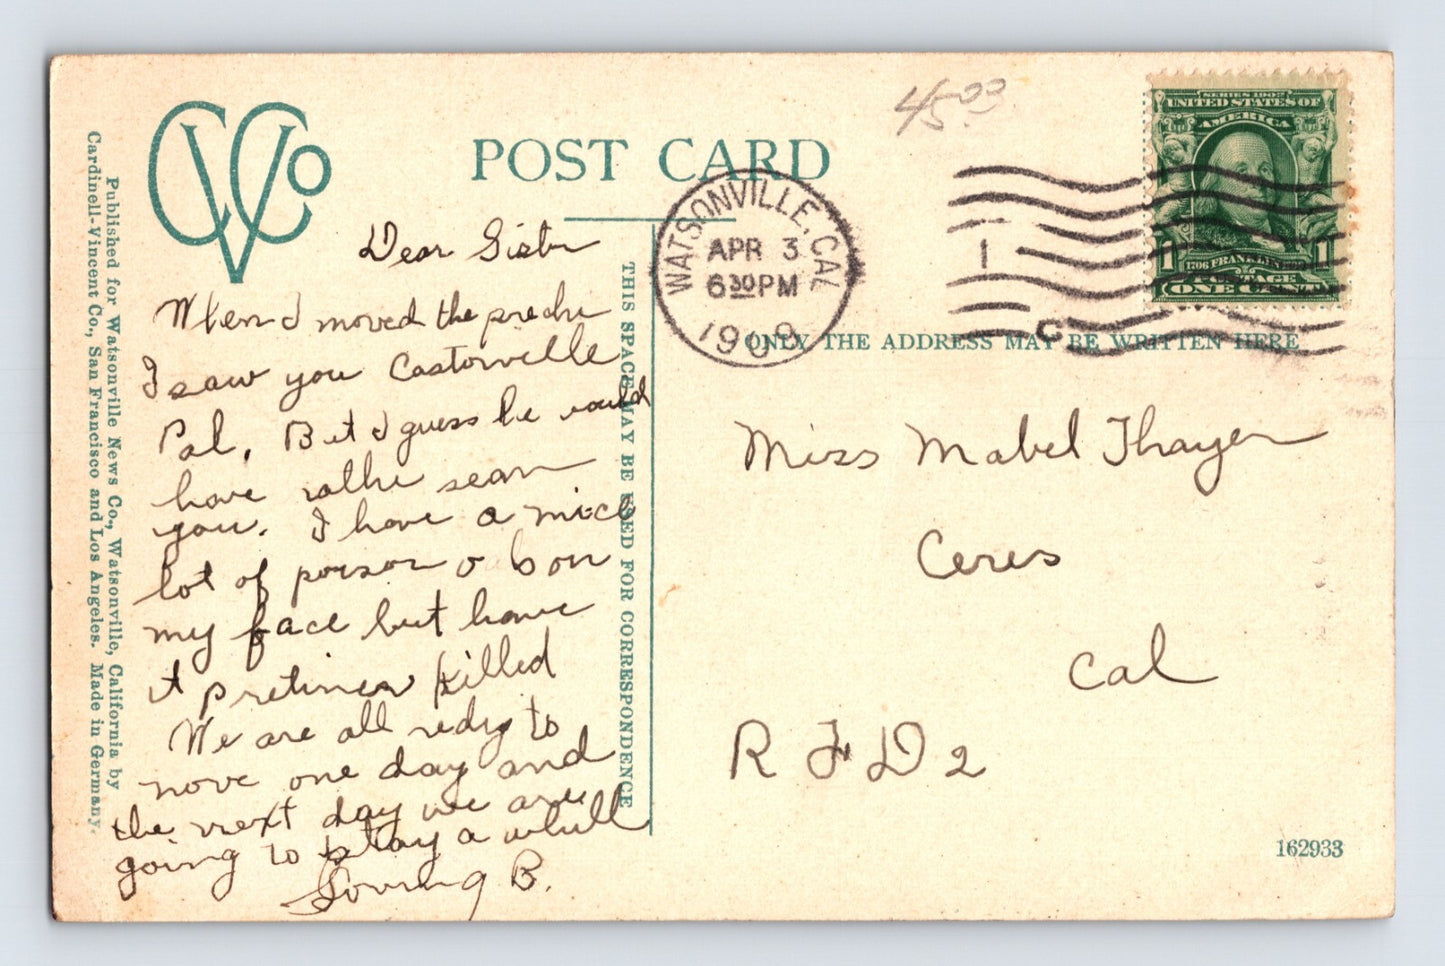 CVCo
POST CARD
45.00
SERIES 1902
UNITED STATES OF
AMERICA
1706 FRANKLIN
POSTAGE
1 ONE CENT 1
WATSONVILLE, CAL.
APR 3
6 30 PM
1909
1
C
THIS SPACE MAY BE USED FOR CORRESPONDENCE
ONLY THE ADDRESS MAY BE WRITTEN HERE
Published for Watsonville News Co., Watsonville, California by
Cardinell-Vincent Co., San Francisco and Los Angeles. Made in Germany.
Dear Sister
When I moved the
I saw you Castorville
Pal, But I guess he would
have rathe sean
you. I have a nice
lot of poison o b on
my face but have
it killed
We are all redy to
move one day and
the next day we are
going to stay a whill
Loving B.
Miss Mabel Thayer
Ceres
Cal
R F D 2
162933